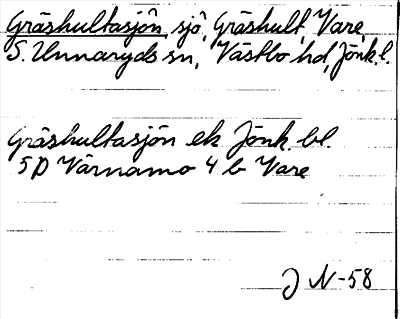 Gräshultasjön, sjö, Gräshult, Vare,
S. Unnaryds sn, Västbo hd, Jönk. l.
Gräshultasjön ek Jönk. bl.
5D Värnamo 4 b Vare
J N-58